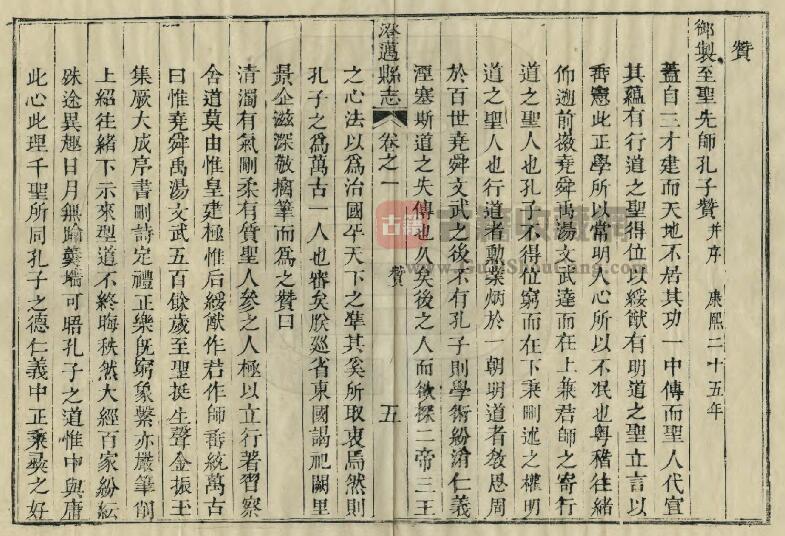 贊
御製至聖先師孔子贊 并序 康熙二十五年
蓋自三才建而天地不居其功一中傳而聖人代宣
其蘊有行道之聖得位以綏猷有明道之聖立言以
垂憲此正學所以常明人心所以不泯也粵稽往緒
仰遡前徽堯舜禹湯文武達而在上兼君師之寄行
道之聖人也孔子不得位窮而在下秉刪述之權明
道之聖人也行道者勲業炳於一朝明道者敎思周
於百世堯舜文武之後不有孔子則學術紛淆仁義
湮塞斯道之失傳也久矣後之人而欲探二帝三王
澄邁縣志 卷之一 贊 五
之心法以為治國平天下之準其奚所取衷焉然則
孔子之為萬古一人也審矣朕廵省東國謁祀闕里
景企滋深敬摛筆而為之贊曰
清濁有氣剛柔有質聖人參之人極以立行著習察
舍道莫由惟皇建極惟后綏猷作君作師垂統萬古
曰惟堯舜禹湯文武五百餘歲至聖挺生聲金振玉
集厥大成序書刪詩定禮正樂旣窮象繫亦嚴筆削
上紹往緒下示來型道不終晦秩然大經百家紛紜
殊途異趣日月無踰羹墻可晤孔子之道惟中與庸
此心此理千聖所同孔子之德仁義中正秉彞之好